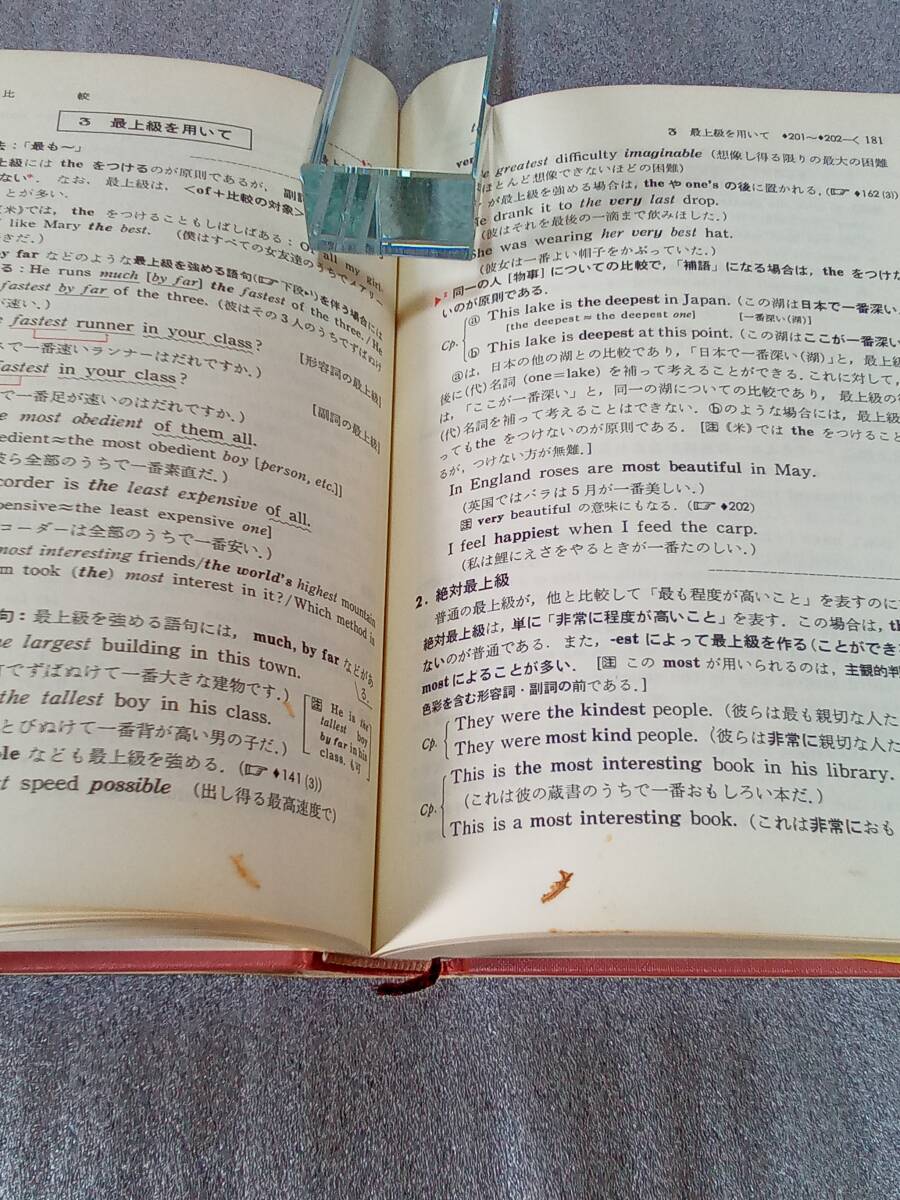 比　較
3 最上級を用いて
法：「最も〜」
上級には the をつけるのが原則であるが，副詞
ない*．なお，最上級は，<of＋比較の対象>
ことが多い．
(米)では，the をつけることもしばしばある：Of all my girl
I like Mary the best. (僕はすべての女友達のうちでメアリー
きだ．)
by far などのような最上級を強める語句(☞下段•)を伴う場合には
る：He runs much [by far] the fastest of the three./He
fastest by far of the three. (彼はその3人のうちでずばぬけ
が速い．)
fastest runner in your class?
スで一番速いランナーはだれですか．) [形容詞の最上級]
fastest in your class?
で一番足が速いのはだれですか．) [副詞の最上級]
most obedient of them all.
obedient≈the most obedient boy [person, etc.]]
彼ら全部のうちで一番素直だ．)
corder is the least expensive of all.
expensive≈the least expensive one]
コーダーは全部のうちで一番安い．)
most interesting friends/the world's highest mountain
took (the) most interest in it?/Which method is
句：最上級を強める語句には，much, by far などがあ
る．
the largest building in this town.
町でずばぬけて一番大きな建物です．)
the tallest boy in his class.
とびぬけて一番背が高い男の子だ．)
[注 He is the
tallest boy
by far in his
class. も可]
ble なども最上級を強める．(☞ ♦141(3))
speed possible (出し得る最高速度で)
3 最上級を用いて ♦201〜♦202—< 181
greatest difficulty imaginable (想像し得る限りの最大の困難
ほとんど想像できないほどの困難)
が最上級を強める場合は，the や one's の後に置かれる．(☞ ♦162(3)
He drank it to the very last drop.
(彼はそれを最後の一滴まで飲みほした．)
She was wearing her very best hat.
(彼女は一番よい帽子をかぶっていた．)
同一の人［物事］についての比較で，「補語」になる場合は，the をつけな
いのが原則である．
Cp. ⓐ This lake is the deepest in Japan. (この湖は日本で一番深い．
[the deepest ≈ the deepest one] [一番深い(湖)]
ⓑ This lake is deepest at this point. (この湖はここが一番深い
ⓐは，日本の他の湖との比較であり，「日本で一番深い(湖)」と，最上級
後に(代)名詞 (one＝lake) を補って考えることができる．これに対して，
は，「ここが一番深い」と，同一の湖についての比較であり，最上級の後
(代)名詞を補って考えることはできない．ⓑのような場合には，最上級
ってもthe をつけないのが原則である．［注《米》では the をつけること
るが，つけない方が無難．］
In England roses are most beautiful in May.
(英国ではバラは5月が一番美しい．)
注 very beautiful の意味にもなる．(☞ ♦202)
I feel happiest when I feed the carp.
(私は鯉にえさをやるときが一番たのしい．)
2. 絶対最上級
普通の最上級が，他と比較して「最も程度が高いこと」を表すのに
絶対最上級は，単に「非常に程度が高いこと」を表す．この場合は，th
ないのが普通である．また，-est によって最上級を作る(ことができ
most によることが多い．［注 この most が用いられるのは，主観的判
色彩を含む形容詞・副詞の前である．］
Cp. They were the kindest people. (彼らは最も親切な人た
They were most kind people. (彼らは非常に親切な人た
Cp. This is the most interesting book in his library.
(これは彼の蔵書のうちで一番おもしろい本だ．)
This is a most interesting book. (これは非常におも